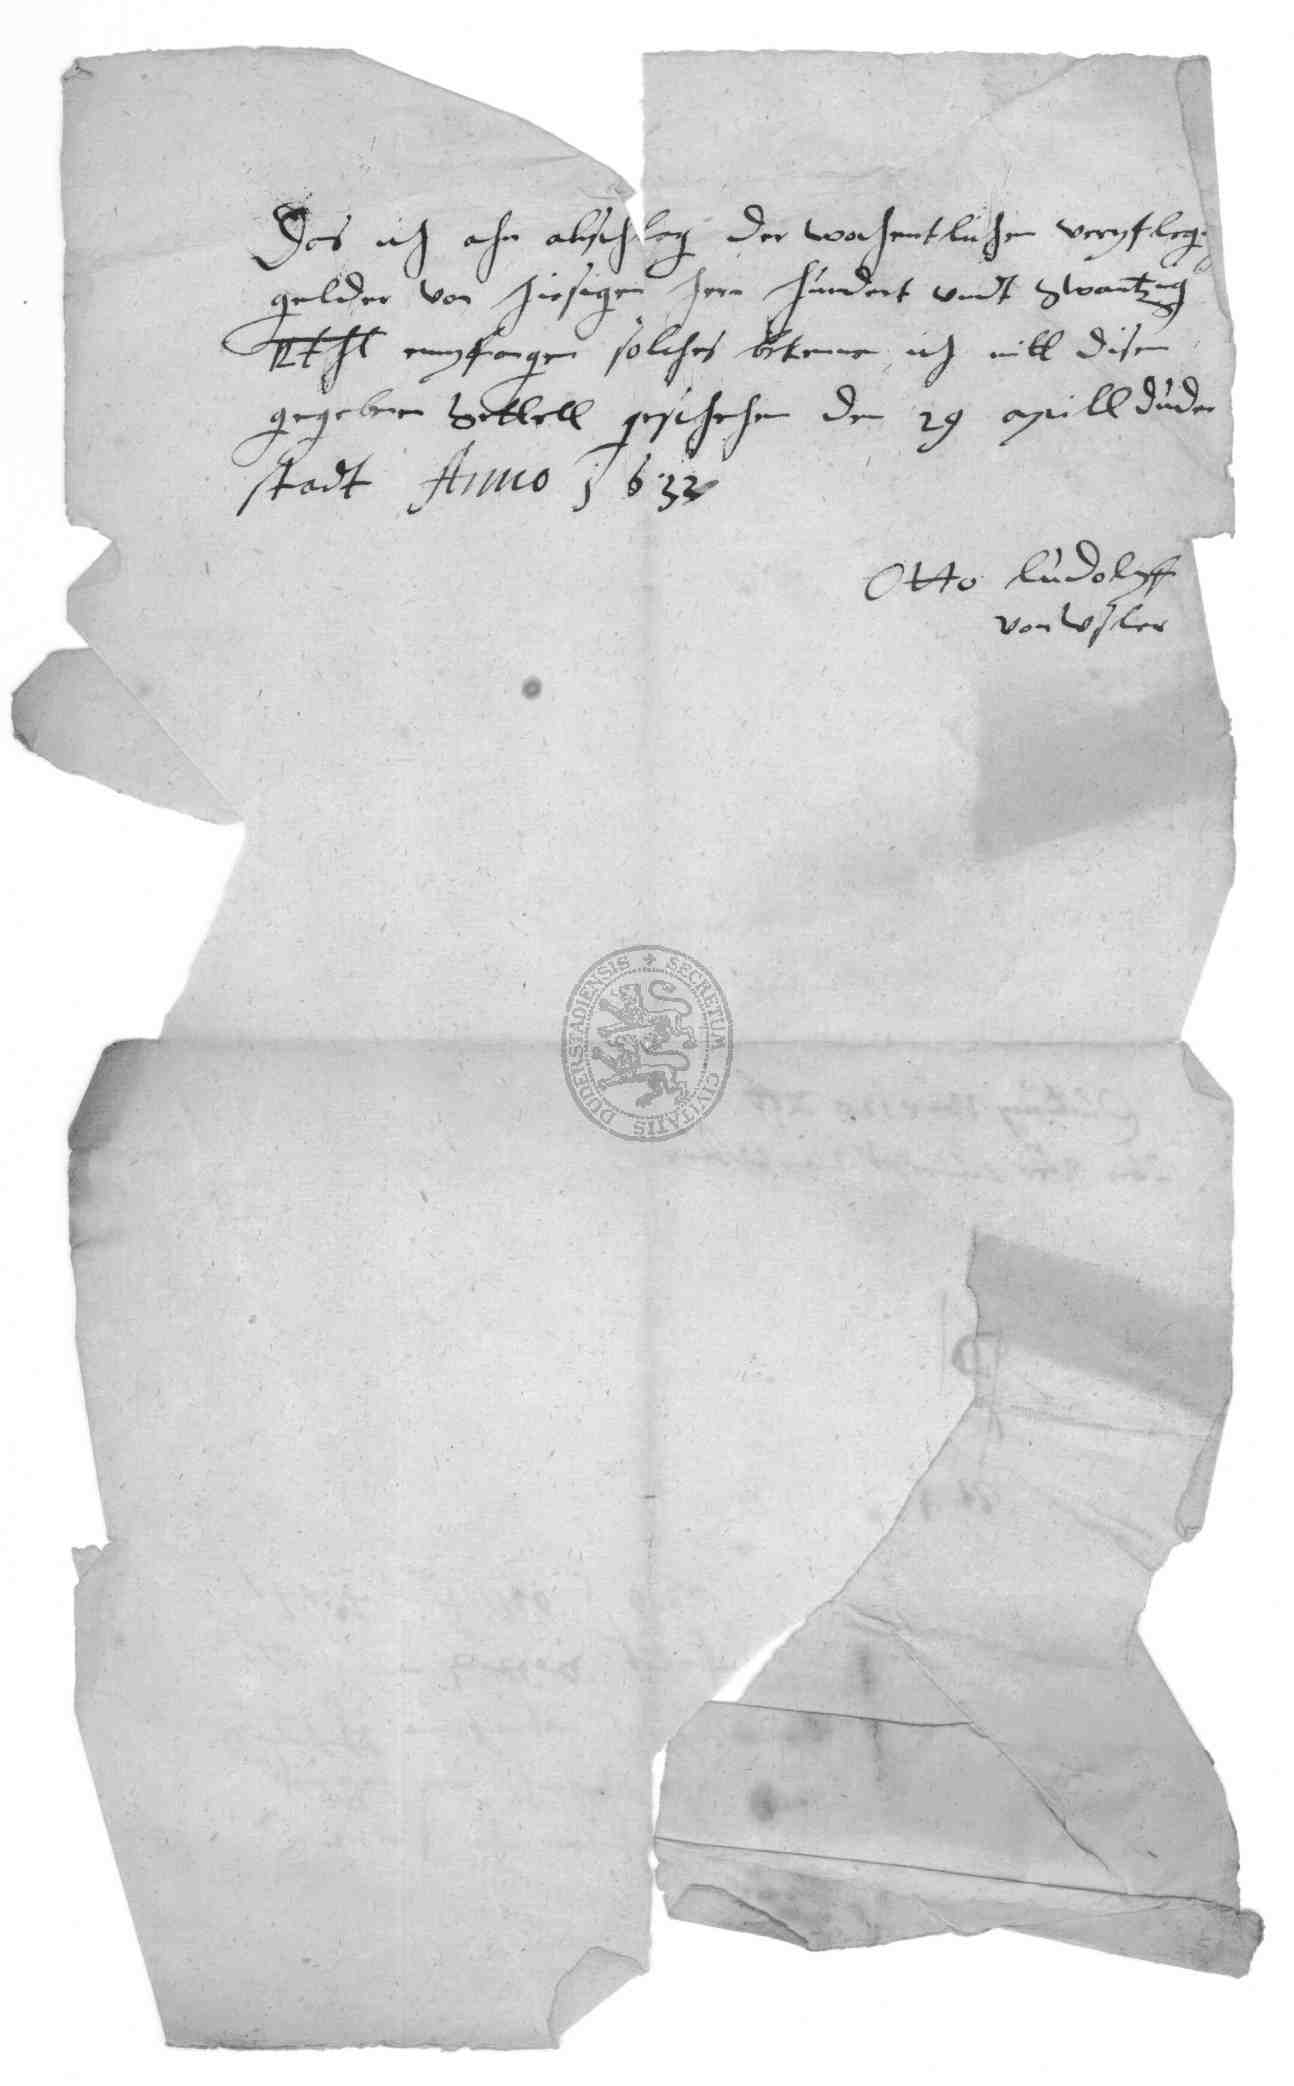 Das ich ahn abschlag der wochentlichen verpfleg
gelder von hiesigen hern hundert vndt zwantzig
Rthl empfangen solches bekenne ich mitt disen
gegebenen zettell geschehen den 29 aprill duder
stadt Anno 1633
Otto Ludolff
von Vsler
SECRETUM CIVITATIS DUDERSTADIENSIS